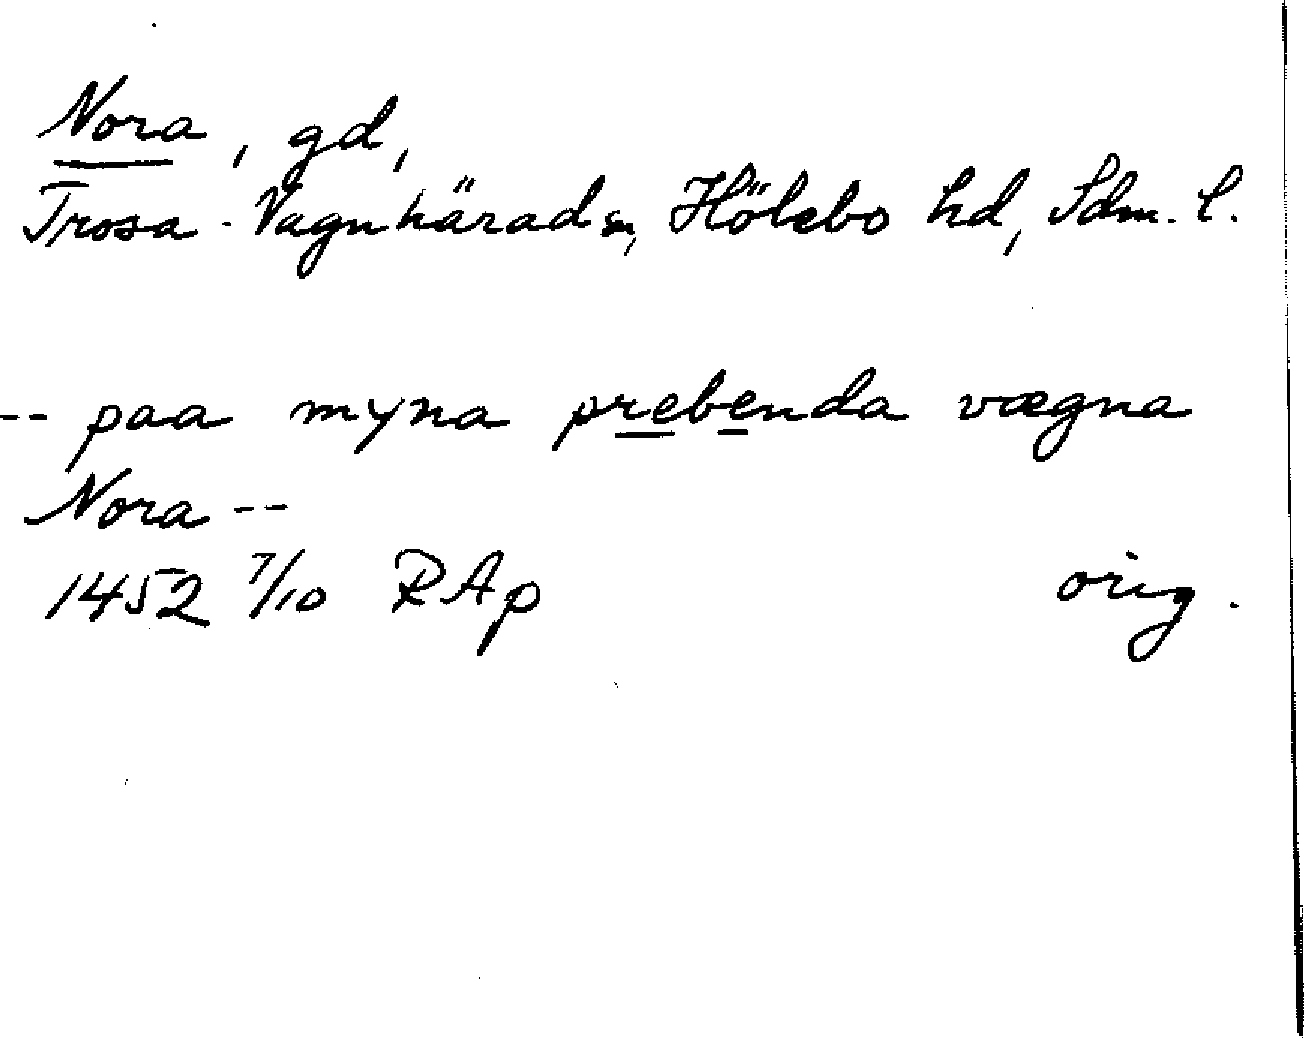 Nora, gd,
Trosa-Vagnhärad sn, Hölebo hd, Sdm. l.
-- paa myna prebenda vægna
Nora --
1452 7/10 RAp orig.